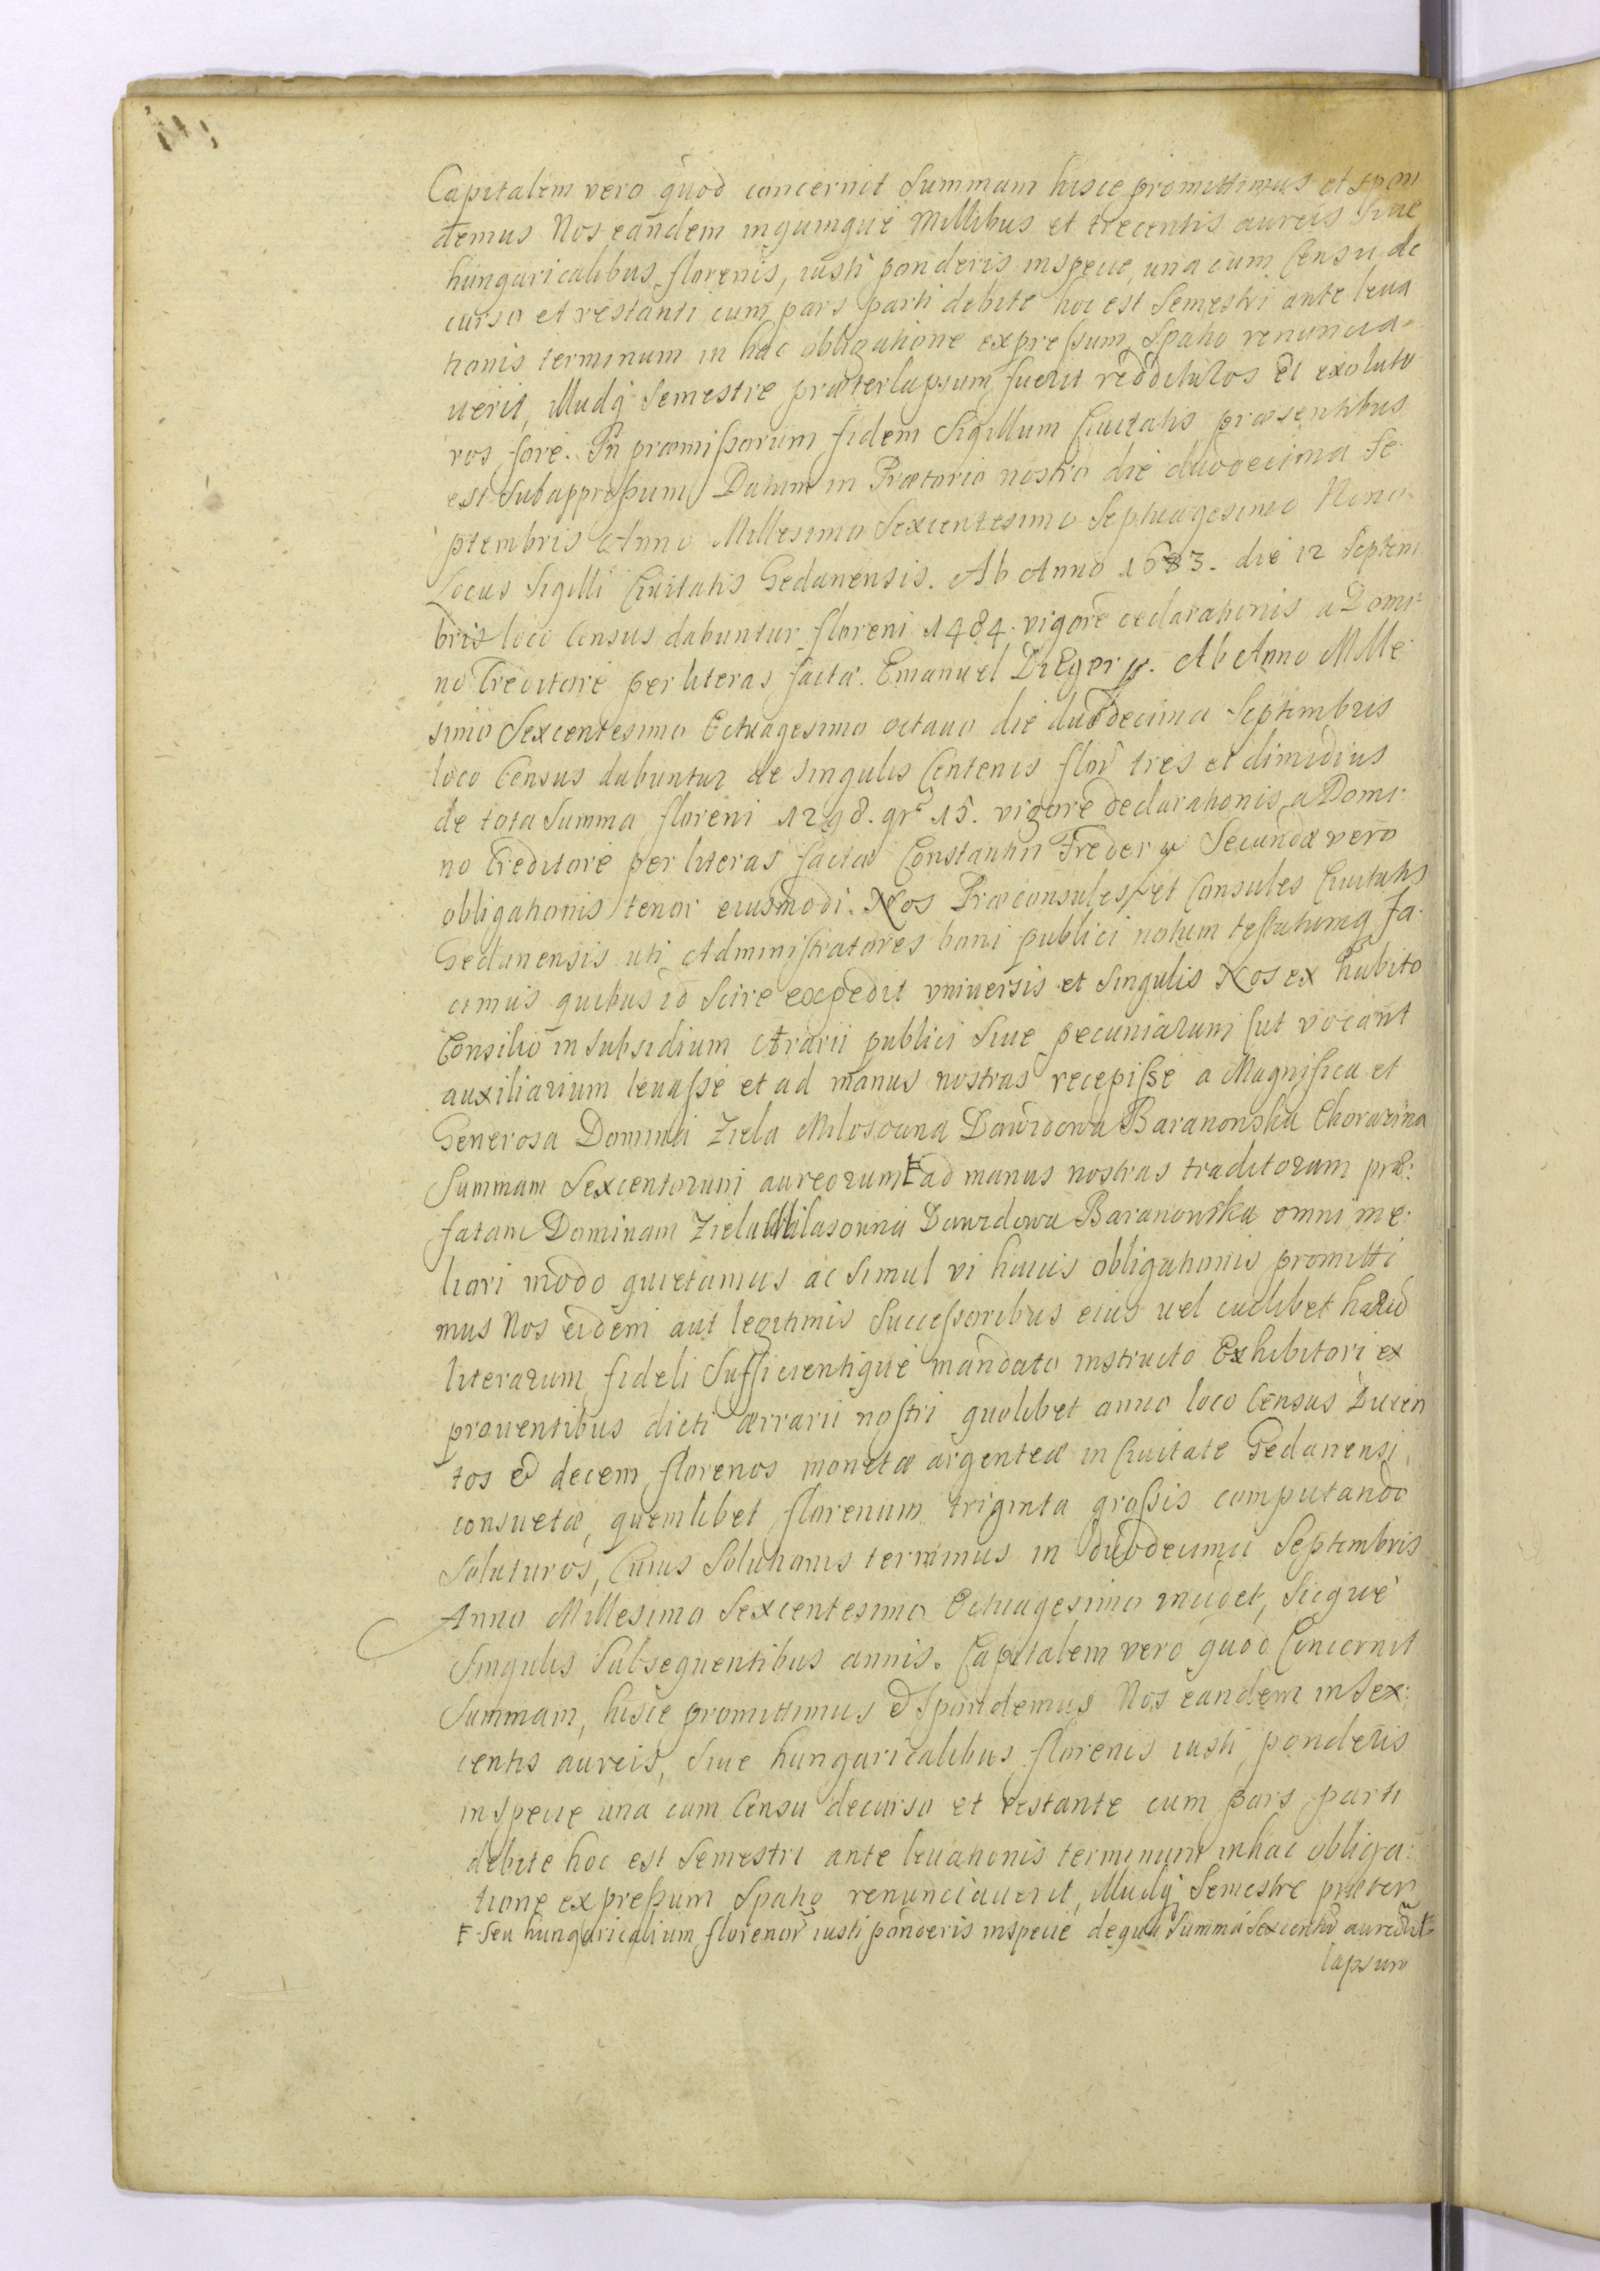 Capitalem vero quod concernit Summam hisce promittimus et spon
demus Nos eandem in quinque Millibus et trecentis aureis Siue
hungaricalibus florenis, iusti ponderis inspecie, una cum Censu de
curso et restanti cum pars parti debite hoc est Semestri ante leua
tionis terminum in hac obligatione expressum, Spatio renuncia-
uerit, illudq Semestre præterlapsum fuerit reddituros et exoluto
ros fore. In præmissorum fidem Sigillum Ciuitatis præsentibus
est Subappressum Datum in Prætorio nostro die duodecima Se-
ptembris Anno Millesimo Sexcentesimo Septuagesimo Nono
Locus Sigilli Ciuitatis Gedanensis. Ab Anno 1683. die 12 Septem
bris loco Census dabuntur floreni 1484. vigore declarationis a Domi-
no Creditore per literas factæ. Emanuel Diger. Ab Anno Mille
simo Sexcentesimo Octuagesimo octauo die duodecima Septembris
loco Census dabuntur de singulis Centenis flor tres et dimidius
de tota Summa floreni 1298. gr 15. vigore declarationis a Domi-
no Creditore per literas factæ Constantin Freder Secundæ vero
obligationis tenor eiusmodi. Nos Præconsules et Consules Ciuitatis
Gedanensis uti Administratores boni publici notum testatumq fa-
cimus quibus id Scire expedit vniuersis et Singulis Nos ex habito
Consilio in Subsidium Ærarii publici Siue pecuniarum (ut vocant
auxiliarium leuasse et ad manus nostras recepisse a Magnifica et
Generosa Domina Ziela Milosowna Dawidowa Baranowska Chorazina
Summam Sexcentorum aureorum F ad manus nostras traditorum præ:
fatam Dominam Ziela Milasowna Dawidowa Baranowska omni me:
liori modo quietamus ac Simul vi huius obligationis promitti
mus Nos eidem aut legitimis Successoribus eius uel cuilibet harũ
literarum fideli Sufficientique mandato instructo Exhibitori ex
prouentibus dicti ærrarii nostri quolibet anno loco Census Ducen
tos & decem florenos monetæ argenteæ in Ciuitate Gedanensi
consuetæ, quemlibet florenum triginta grossis computando
Soluturos, Cuius Solutionis terminus in duodecima Septembris
Anno Millesimo Sexcentesimo Octuagesimo incidet, Sicque
Singulis Subsequentibus annis. Capitalem vero quod Concernit
Summam, hisce promittimus & Spondemus Nos eandem in Sex:
centis aureis, Siue hungaricalibus florenis iusti ponderis
inspecie una cum Censu decurso et restante cum pars parti
debite hoc est Semestri ante leuationis terminum in hac obliga:
tione expressum Spatio renunciauerit, illudq Semestre præter
F Seu hungaricalium florenor iusti ponderis inspecie de qua Summa Sexcento
lapsum